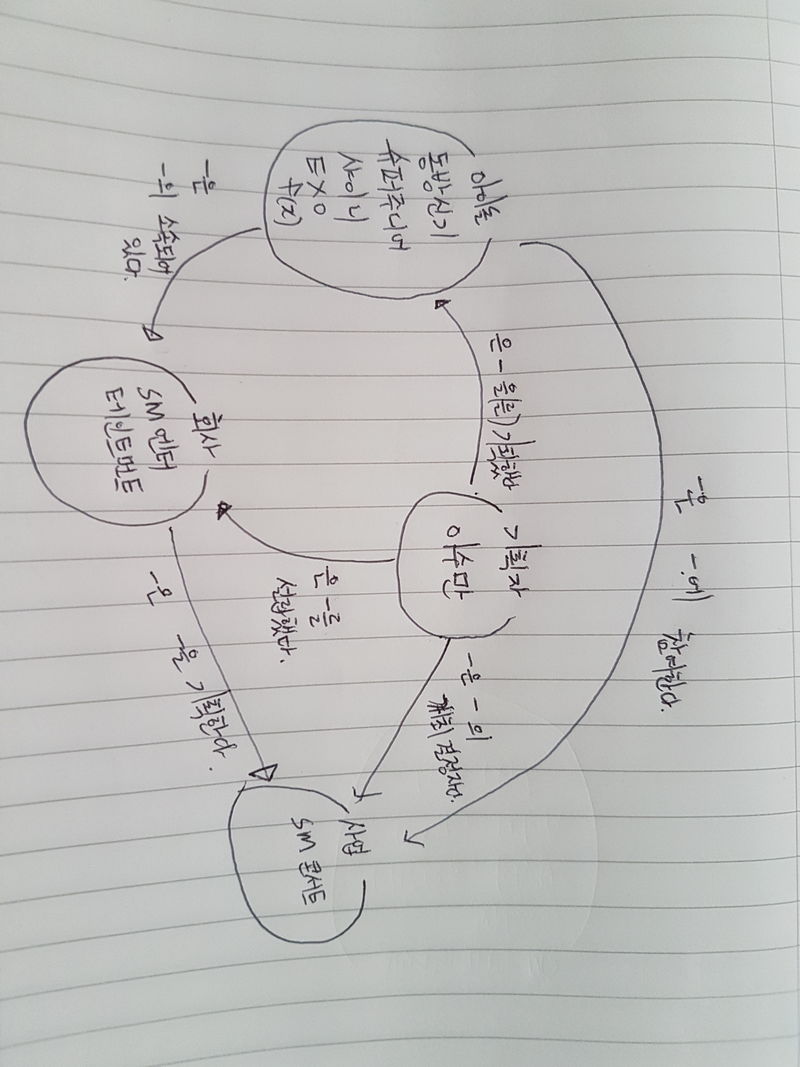 아이돌
동방신기
슈퍼주니어
샤이니
EXO
f(x)
-은
-의 소속되어
있다.
은 - 을(를) 기획했다
-은 -에 참여한다.
기획자
이수만
회사
SM 엔터
테인트먼트
은 -를
설립했다.
-은 - 의
개최 결정자다.
-은 -을 기획한다.
사업
SM 콘서트